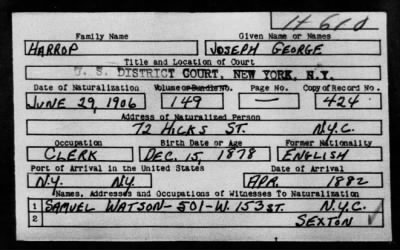 H610
Family Name Given Name or Names
HARROP JOSEPH GEORGE
Title and Location of Court
U. S. DISTRICT COURT, NEW YORK, N.Y.
Date of Naturalization Volume or Bundle No. Page No. Copy of Record No.
JUNE 29, 1906 149 — 424
Address of Naturalized Person
72 HICKS ST. N.Y.C.
Occupation Birth Date or Age Former Nationality
CLERK DEC. 15, 1878 ENGLISH
Port of Arrival in the United States Date of Arrival
N.Y. N.Y. APR. 1882
Names, Addresses and Occupations of Witnesses To Naturalization
1 SAMUEL WATSON - 501 - W. 153 ST. N.Y.C.
2 SEXTON